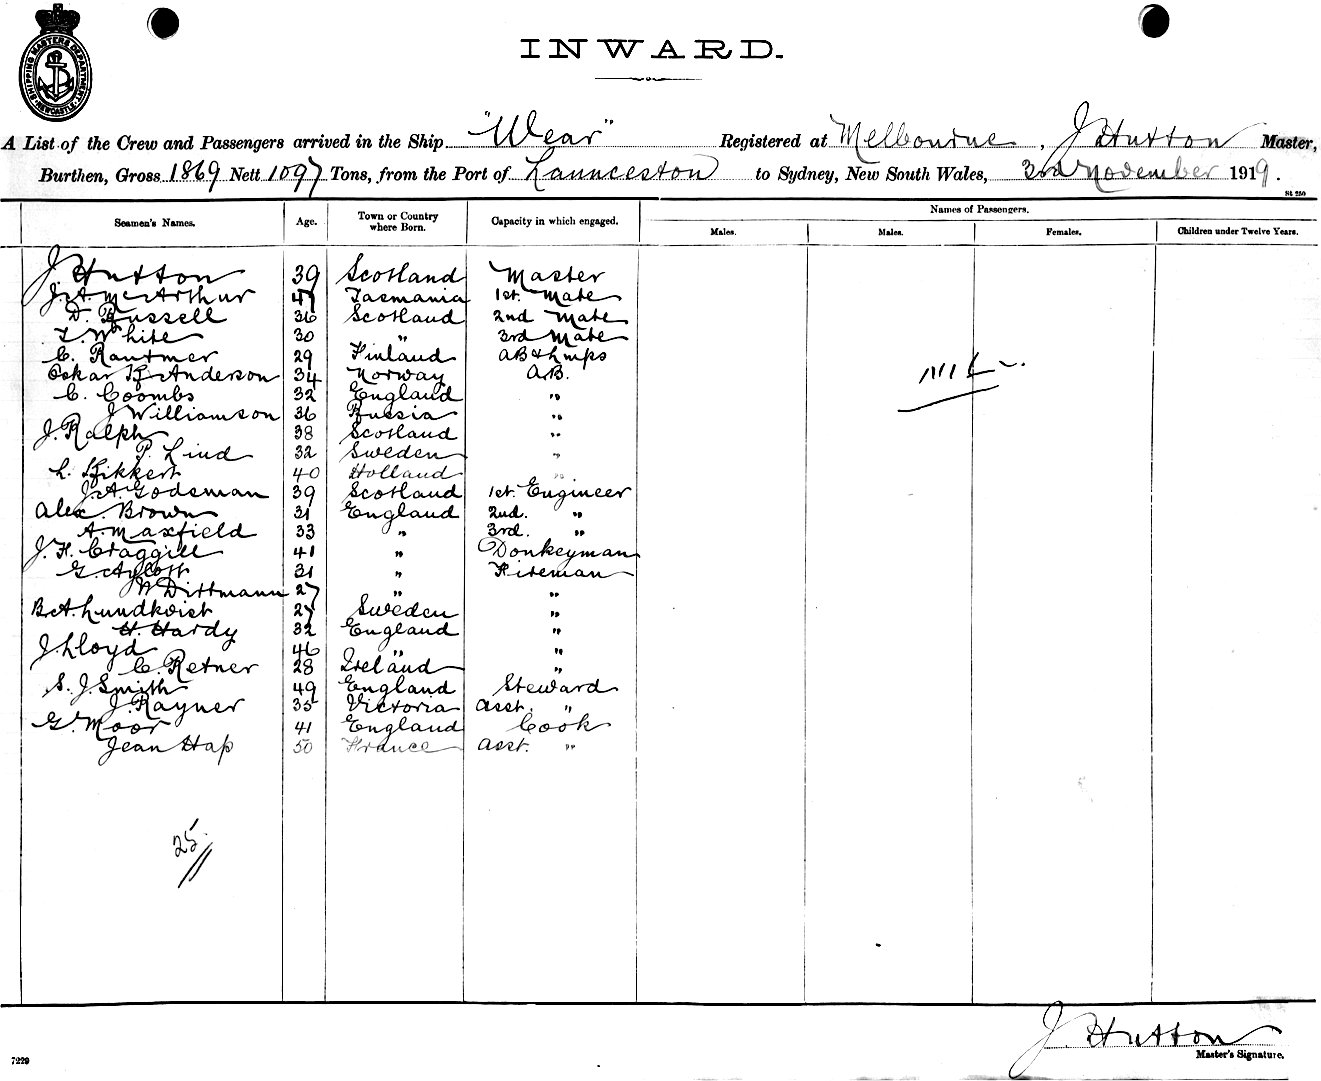 SHIPPING MASTERS DEPARTMENT NEWCASTLE
INWARD.
A List of the Crew and Passengers arrived in the Ship "Wear" Registered at Melbourne, J Hutton Master,
Burthen, Gross 1869 Nett 1097 Tons, from the Port of Launceston to Sydney, New South Wales, 3rd November 1919.
St 250
Seamen's Names. Age. Town or Country where Born. Capacity in which engaged. Names of Passengers.
Males. Males. Females. Children under Twelve Years.
J Hutton 39 Scotland Master
J. A. McArthur 47 Tasmania 1st. Mate
D. Russell 36 Scotland 2nd Mate
T. White 30 " 3rd Mate
C. Rautmer 29 Finland AB & Lmps
Oskar Anderson 34 Norway AB.
C. Coombs 32 England "
J Williamson 36 Russia "
J. Ralph 38 Scotland "
P. Lind 32 Sweden "
L. Fikkert 40 Holland "
J. A. Godsman 39 Scotland 1st. Engineer
Alex. Brown 31 England 2nd. "
A. Maxfield 33 " 3rd. "
J. H. Craggill 41 " Donkeyman
G. Aylott 31 " Fireman
W Dittmann 27 " "
B. A. Lundkvist 27 Sweden "
H. Hardy 32 England "
J. Lloyd 46 " "
C. Retner 28 Ireland "
S. J. Smith 49 England Steward
J. Rayner 35 Victoria Asst. "
G. Moor 41 England Cook
Jean Hap 50 France Asst. "
Nil
25
J. Hutton
Master's Signature.
7229